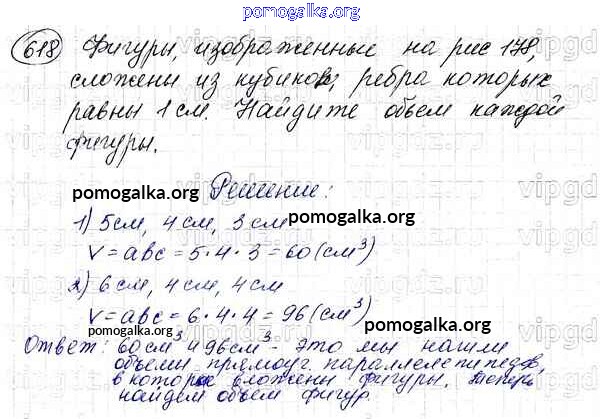 pomogalka.org
618 Фигуры, изображенные на рис 178,
сложены из кубиков, ребра которых
равны 1 см. Найдите объем каждой
фигуры.
pomogalka.org
Решение:
1) 5 см, 4 см, 3 см
pomogalka.org
V = abc = 5·4·3 = 60 (см³)
2) 6 см, 4 см, 4 см
V = abc = 6·4·4 = 96 (см³)
pomogalka.org
pomogalka.org
Ответ: 60 см³ и 96 см³ - это мы нашли
объемы прямоуг. параллелепипедов,
в которые вложены фигуры. Теперь
найдем объем фигур.